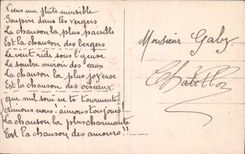 Viens une flûte invisible
Soupire dans les vergers
La chanson la plus paisible
Est la chanson des bergers
Le vent ride sous l'yeuse
Le sombre miroir des eaux
La chanson la plus joyeuse
Est la chanson des oiseaux
que nul soin ne te tourmente
Aimons nous : aimons toujours
La chanson la plus charmante
Est la chanson des amours !!
Monsieur